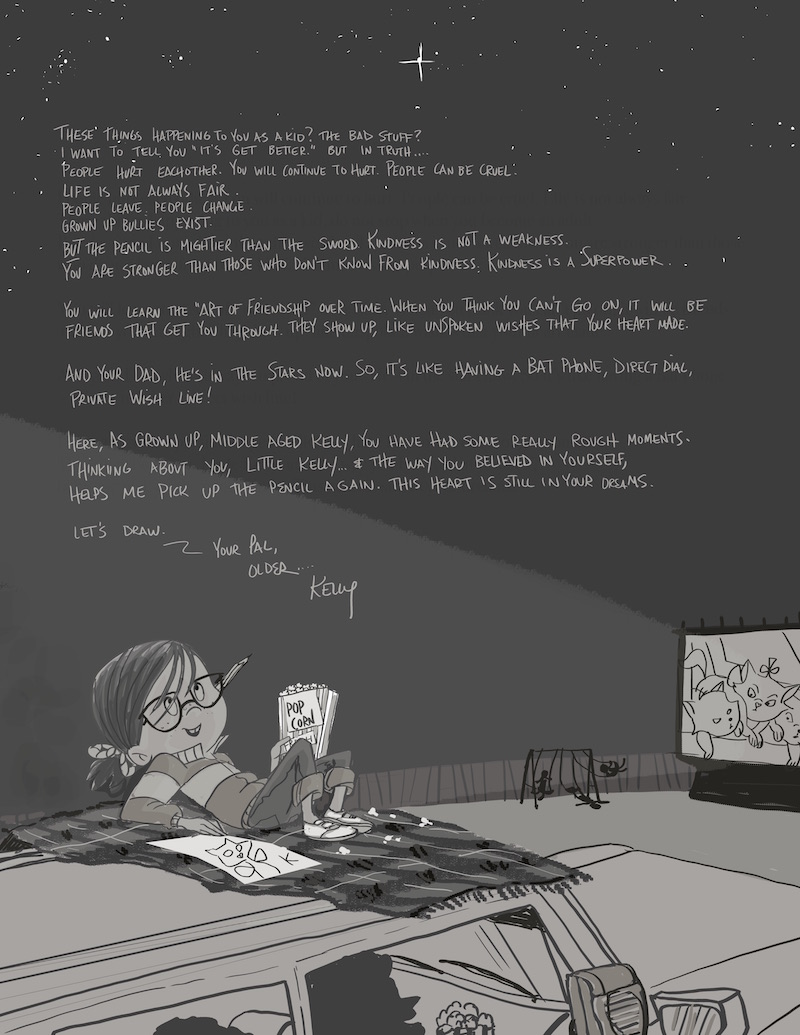 THESE THINGS HAPPENING TO YOU AS A KID? THE BAD STUFF?
I WANT TO TELL YOU "IT'S GET BETTER." BUT IN TRUTH....
PEOPLE HURT EACHOTHER. YOU WILL CONTINUE TO HURT. PEOPLE CAN BE CRUEL.
LIFE IS NOT ALWAYS FAIR.
PEOPLE LEAVE. PEOPLE CHANGE.
GROWN UP BULLIES EXIST.
BUT THE PENCIL IS MIGHTIER THAN THE SWORD. KINDNESS IS NOT A WEAKNESS.
YOU ARE STRONGER THAN THOSE WHO DON'T KNOW FROM KINDNESS. KINDNESS IS A SUPERPOWER.
YOU WILL LEARN THE "ART OF FRIENDSHIP OVER TIME. WHEN YOU THINK YOU CAN'T GO ON, IT WILL BE
FRIENDS THAT GET YOU THROUGH. THEY SHOW UP, LIKE UNSPOKEN WISHES THAT YOUR HEART MADE.
AND YOUR DAD, HE'S IN THE STARS NOW. SO, IT'S LIKE HAVING A BAT PHONE, DIRECT DIAL,
PRIVATE WISH LINE!
HERE, AS GROWN UP, MIDDLE AGED KELLY, YOU HAVE HAD SOME REALLY ROUGH MOMENTS.
THINKING ABOUT YOU, LITTLE KELLY... & THE WAY YOU BELIEVED IN YOURSELF,
HELPS ME PICK UP THE PENCIL AGAIN. THIS HEART IS STILL IN YOUR DREAMS.
LET'S DRAW.
YOUR PAL,
OLDER....
KELLY
POP
CORN
K